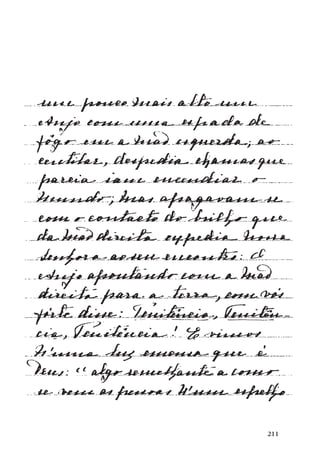 um pouco mais alto um
Anjo com uma espada de
fôgo em a mão esquerda; ao
centilar, despedia chamas que
parcia iam encendiar o
mundo; mas apagavam-se
com o contacto do brilho que
da mão direita expedia Nossa
Senhora ao seu encontro: O
Anjo apontando com a mão
direita para a terra, com vós
forte disse: Penitência, Peniten-
cia, Penitência! E vimos
n'uma luz emensa que é
Deus: "algo semelhante a como
se vem as pessoas n'um espelho
211